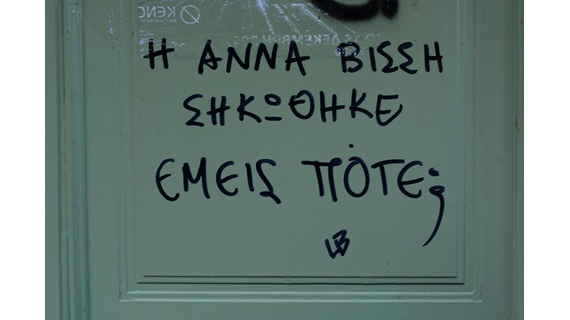 KENO
Η ΑΝΝΑ ΒΙΣΣΗ
ΣΗΚΩΘΗΚΕ
ΕΜΕΙΣ ΠΟΤΕ;
LB